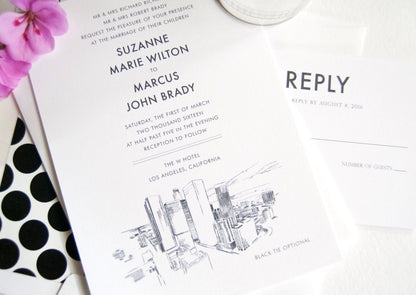 MR & MRS RICHARD RICH
MR & MRS ROBERT BRADY
REQUEST THE PLEASURE OF YOUR PRESENCE
AT THE MARRIAGE OF THEIR CHILDREN
SUZANNE
MARIE WILTON
TO
MARCUS
JOHN BRADY
SATURDAY, THE FIRST OF MARCH
TWO THOUSAND SIXTEEN
AT HALF PAST FIVE IN THE EVENING
RECEPTION TO FOLLOW
THE W HOTEL
LOS ANGELES, CALIFORNIA
BLACK TIE OPTIONAL
REPLY
REPLY BY AUGUST 4, 2016
NUMBER OF GUESTS